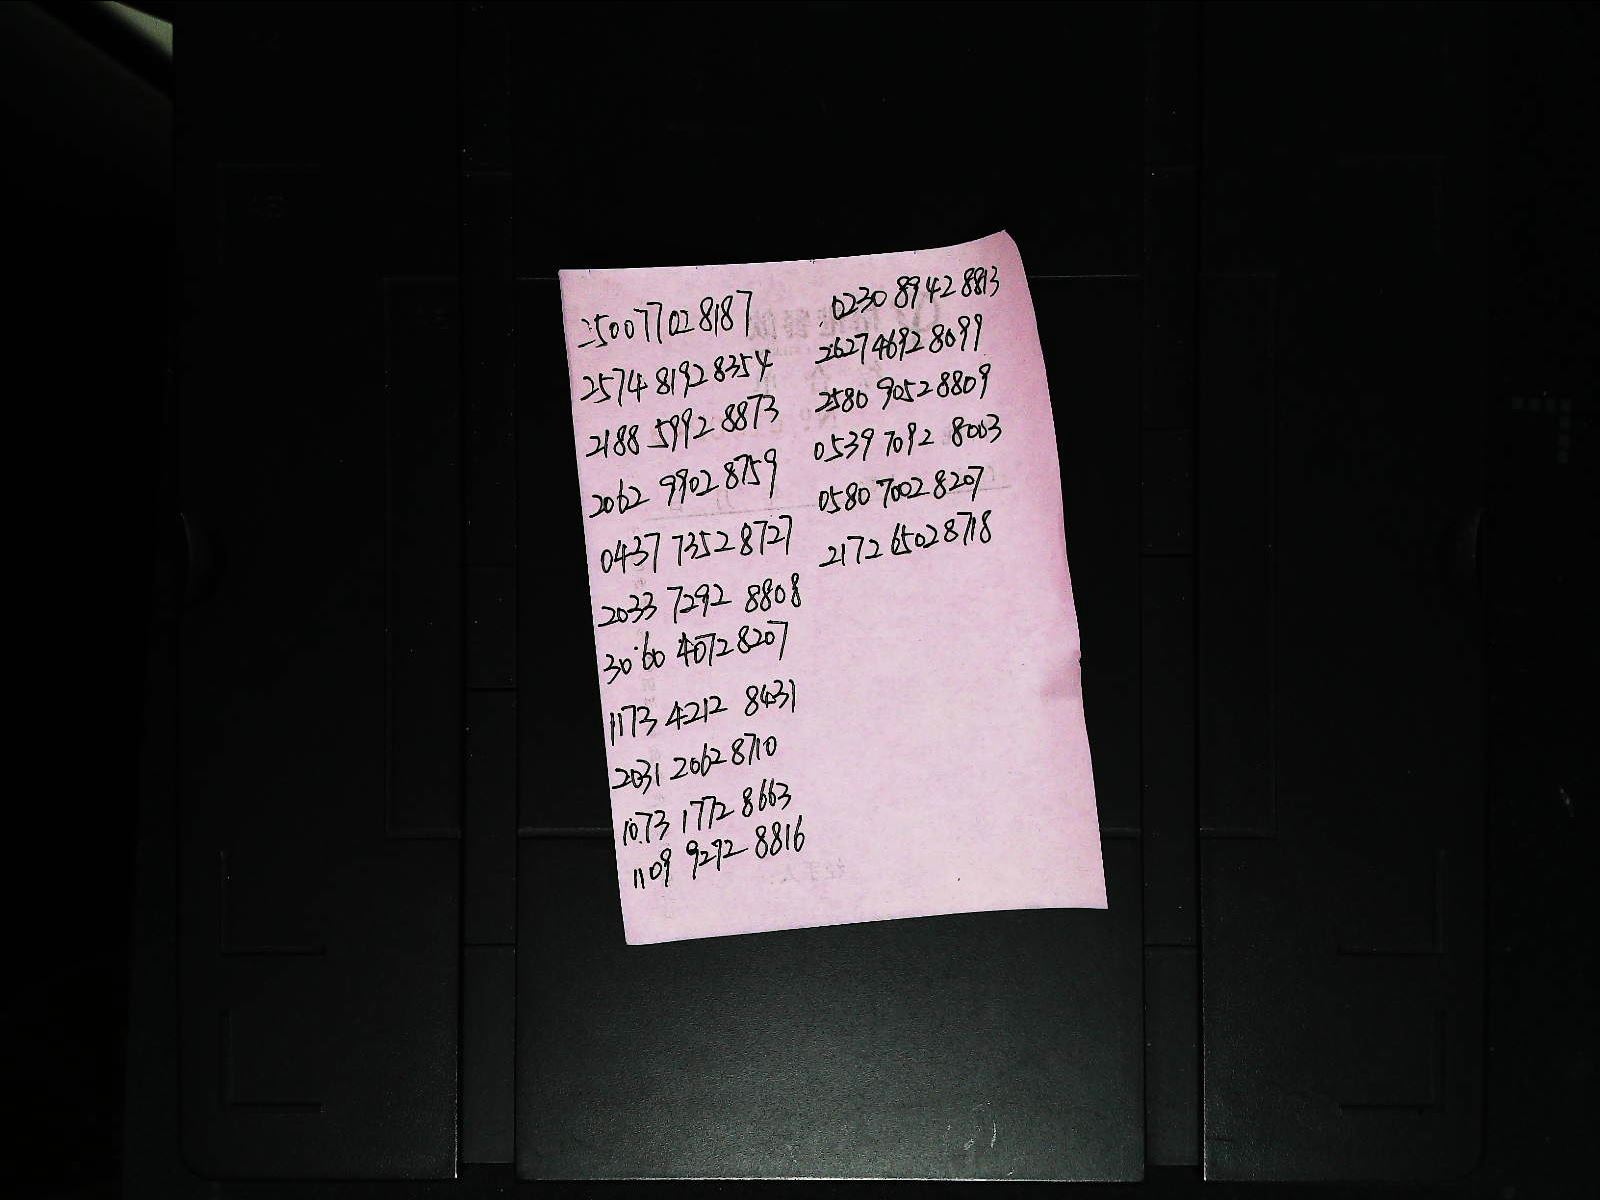 250077028187
2574 8192 8354
2188 5992 8873
2062 9902 8759
0437 7352 8727
2033 7292 8808
3060 4072 8207
1173 4212 8431
2031 2062 8710
1073 1772 8663
1109 9292 8816
0230 8942 8813
2627 4692 8099
2580 9052 8809
0539 7092 8003
0580 7002 8207
2172 6502 8718